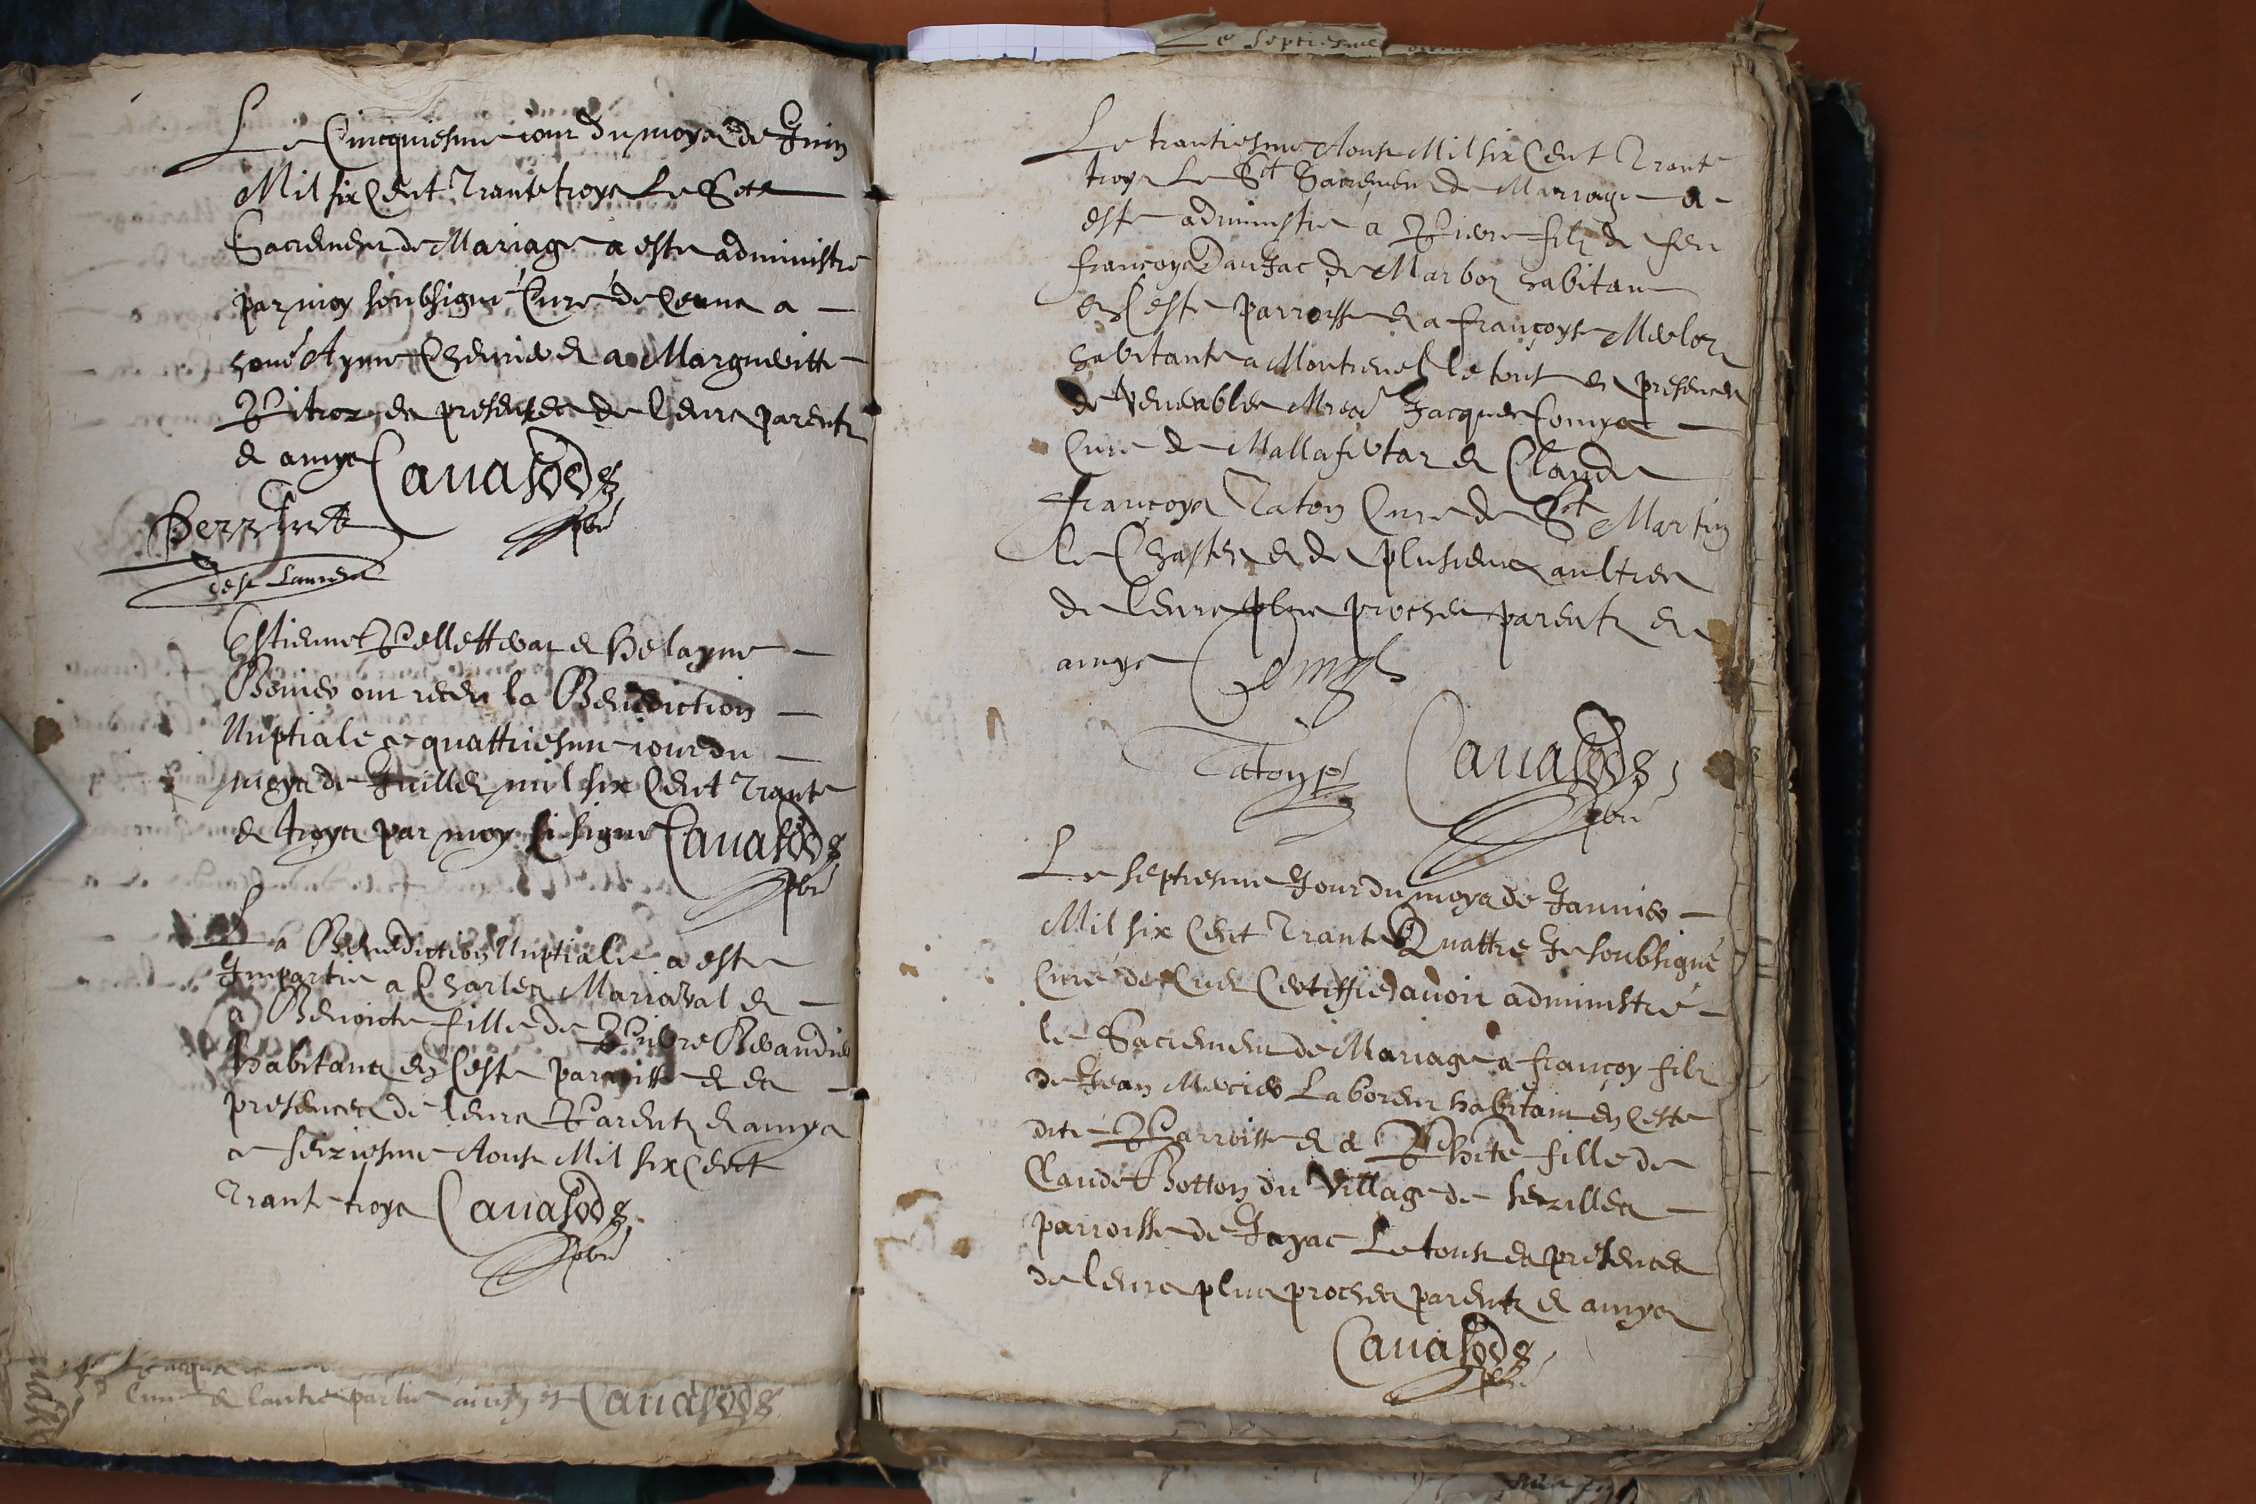 Le Cincquiesme iour du moys de Juin
Mil six Cent Trante troys Le Sct
Sacrement de Mariage a este administré
par moy soubsigné Curé de a
honé Ayme Chevrier et a Margueritte
en presences de leurs parentz
et amys Cavasods
pbre
de st Laurent
Estienne Pelletterat et Helayne
ont receu la Benediction
Nuptiale ce quattriesme iour du
moys de Juillet mil six Cent Trante
et troys par moy si signé Cavasods
pbre
La Benediction Nuptiale a este
Impartie a Charles Mariaval et
a Benoicte fille de Pierre
habitans en Ceste parroisse et en
presences de leurs Parentz et amys
ce seiziesme Aoust Mil six Cent
Trante troys Cavasods
pbre
Jacques
Curé et lautre partie ainsy est Cavasods
Le septiesme
Le trantiesme Aoust Mil six Cent Trante
troys Le St Sacrement de Marriage a
este administré a Pierre filz de feu
francoys Daujac de Marboz habitant
en Ceste parroisse et a francoyse
habitante a Montrevel le tout en presences
de venerables Mres Jacques Comys
Curé de Mallafretaz et Claude
francoys Taton Curé de St Martin
le Chastel et de plusieurs aultres
de leurs plus proches parentz et
amys Comys
Taton pbr Cavasods
pbre
Le septiesme Jour du moys de Janvier
Mil six Cent Trante Quattre Je soubsigné
Curé de Cuet Certiffie avoir administré
le Sacrement de Mariage a francoy filz
de Jean Mercier Laboreur habitant en Ceste
dite Parroisse et a Phite fille de
Claude Botton du Village de
parroisse de Jayac Le tout en presences
de leurs plus proches parentz et amys
Cavasods
pbre